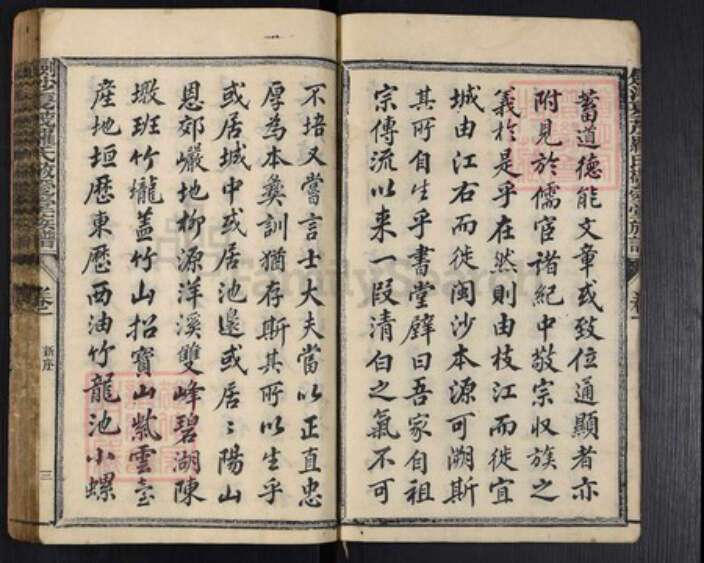 蓄道德能文章或致位通顯者亦
附見於儒宦諸紀中敬宗收族之
義於是乎在然則由枝江而徙宜
城由江右而徙閩沙本源可溯斯
其所自生乎書堂壁曰吾家自祖
宗傳流以来一段清白之氣不可
不培又嘗言士大夫當以正直忠
厚為本彜訓猶存斯其所以生乎
或居城中或居池邊或居〻陽山
恩郊巖地柳源洋溪雙峰碧湖陳
墩班竹櫳蓋竹山招寶山紫雲臺
産地垣歷東歷西油竹龍池小螺
新序
三
FamilySearch